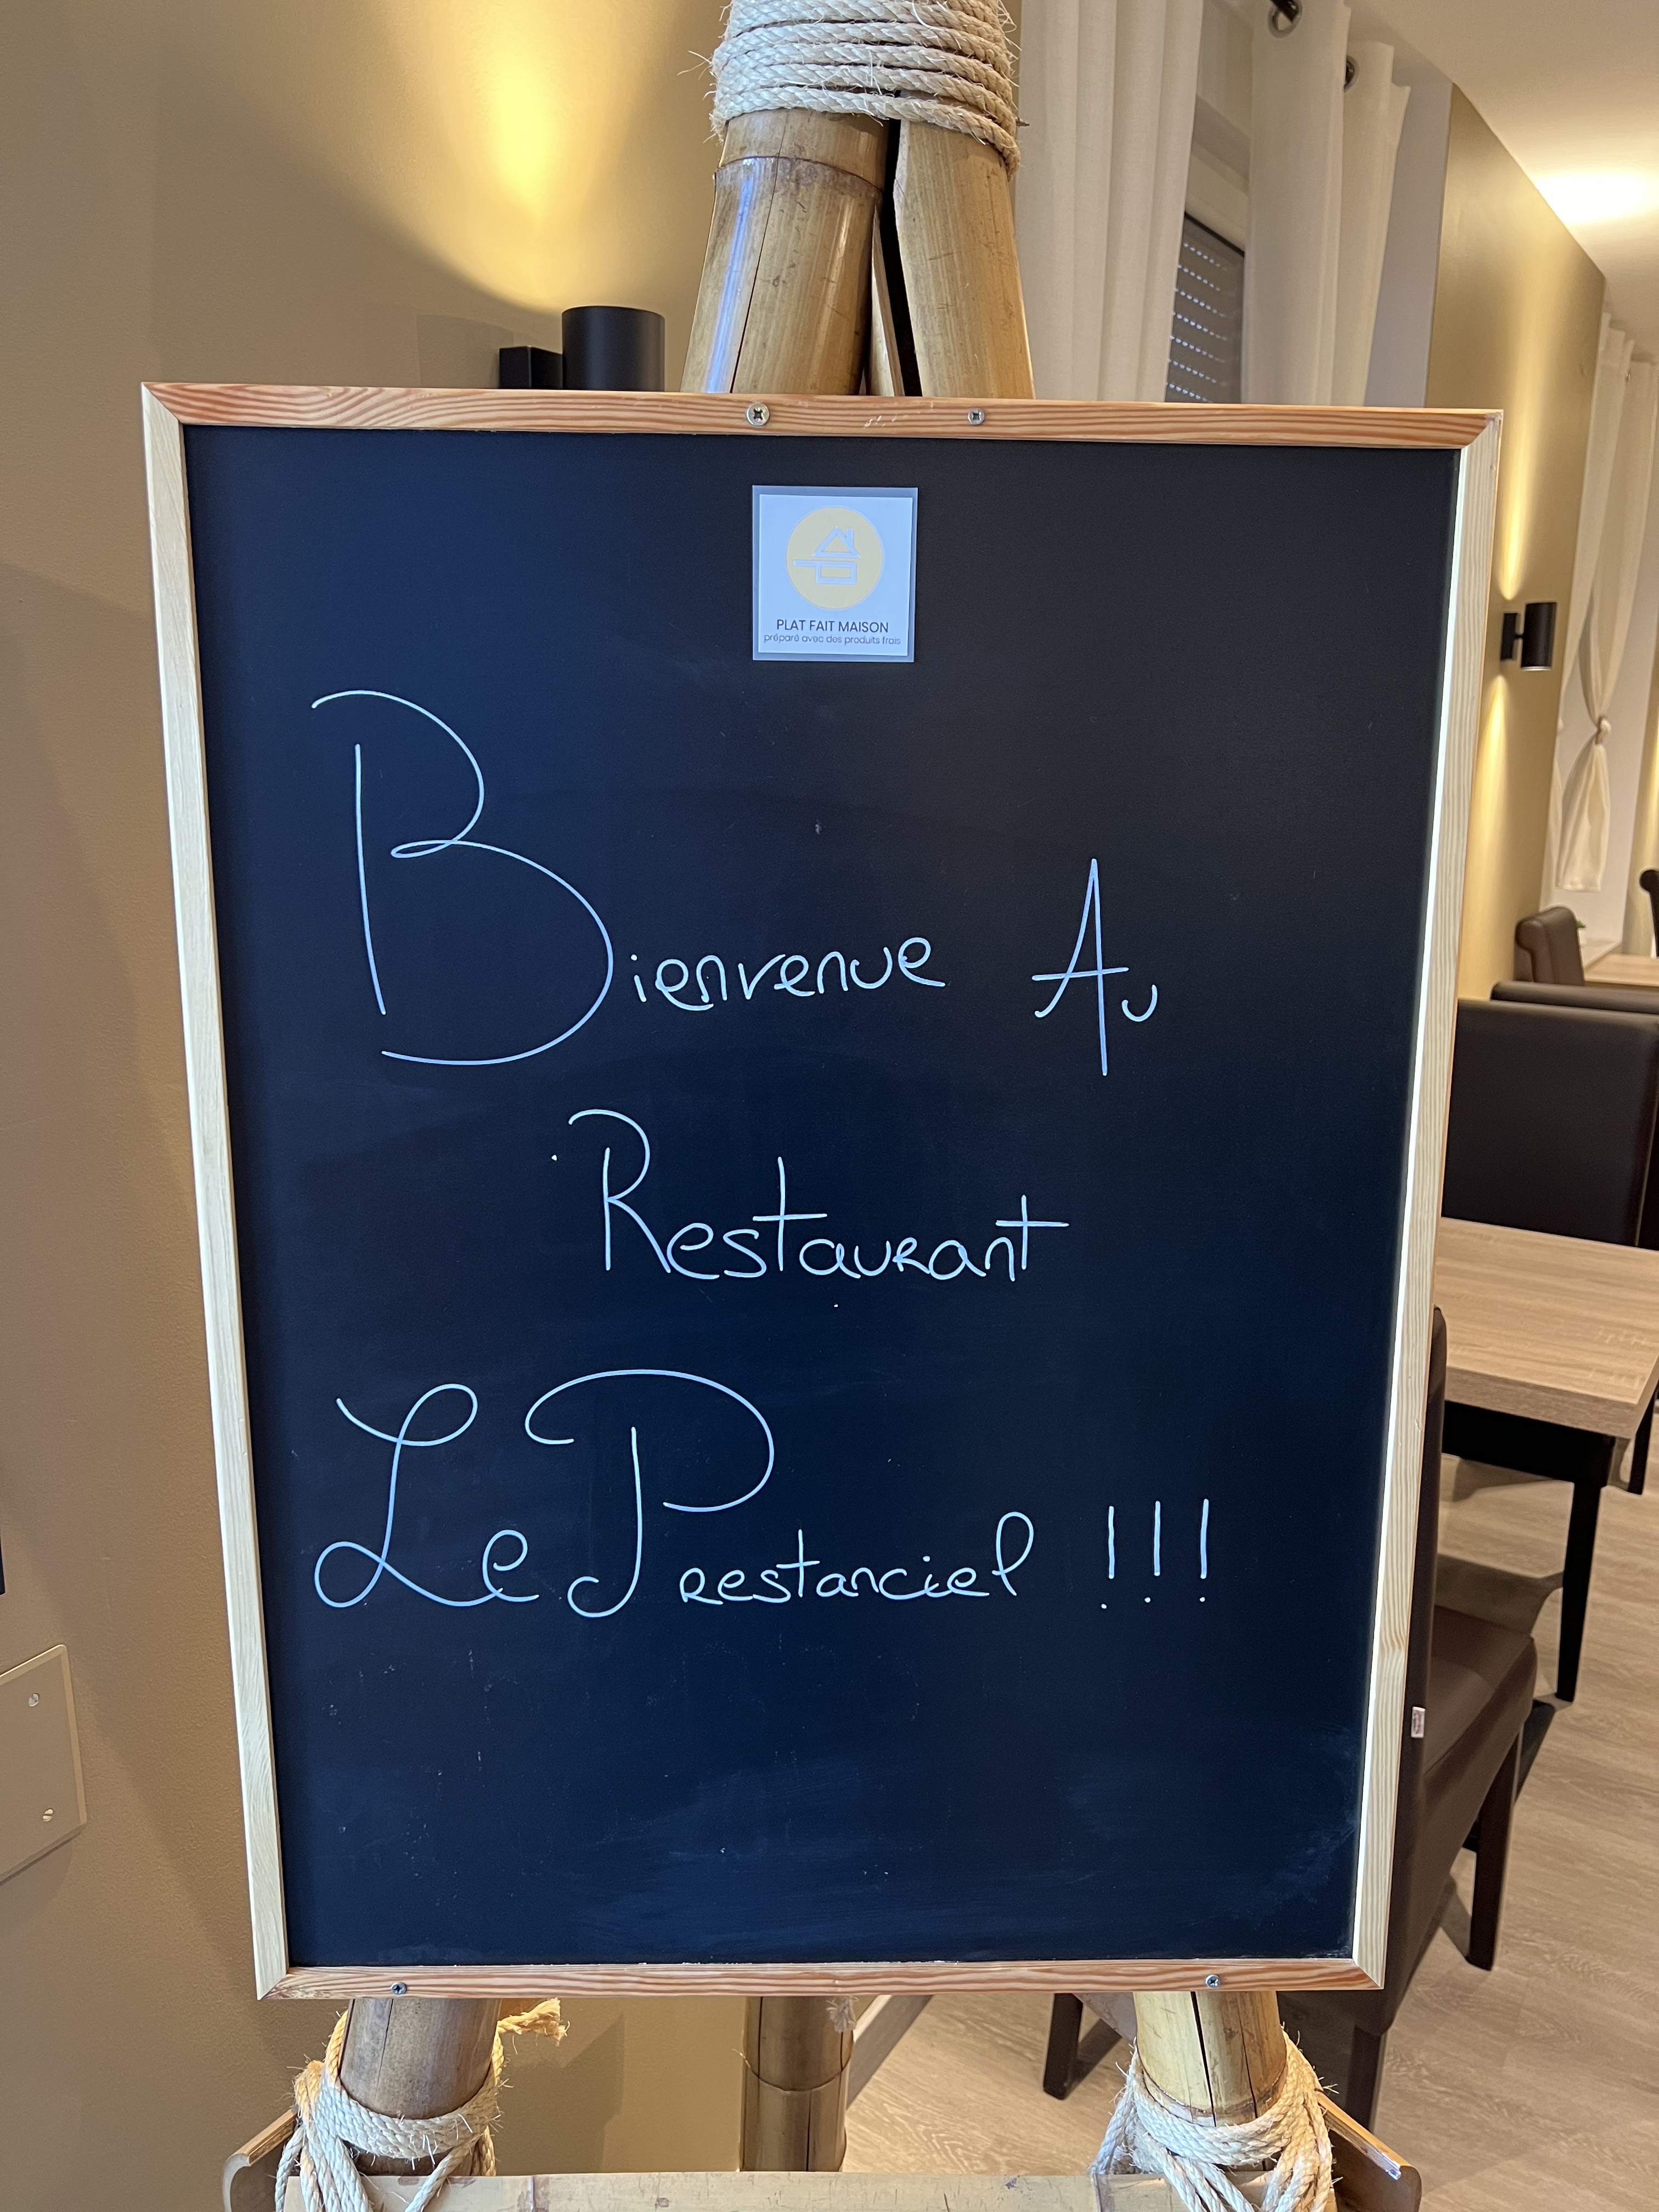 PLAT FAIT MAISON
préparé avec des produits frais
Bienvenue Au
Restaurant
Le Prestanciel !!!